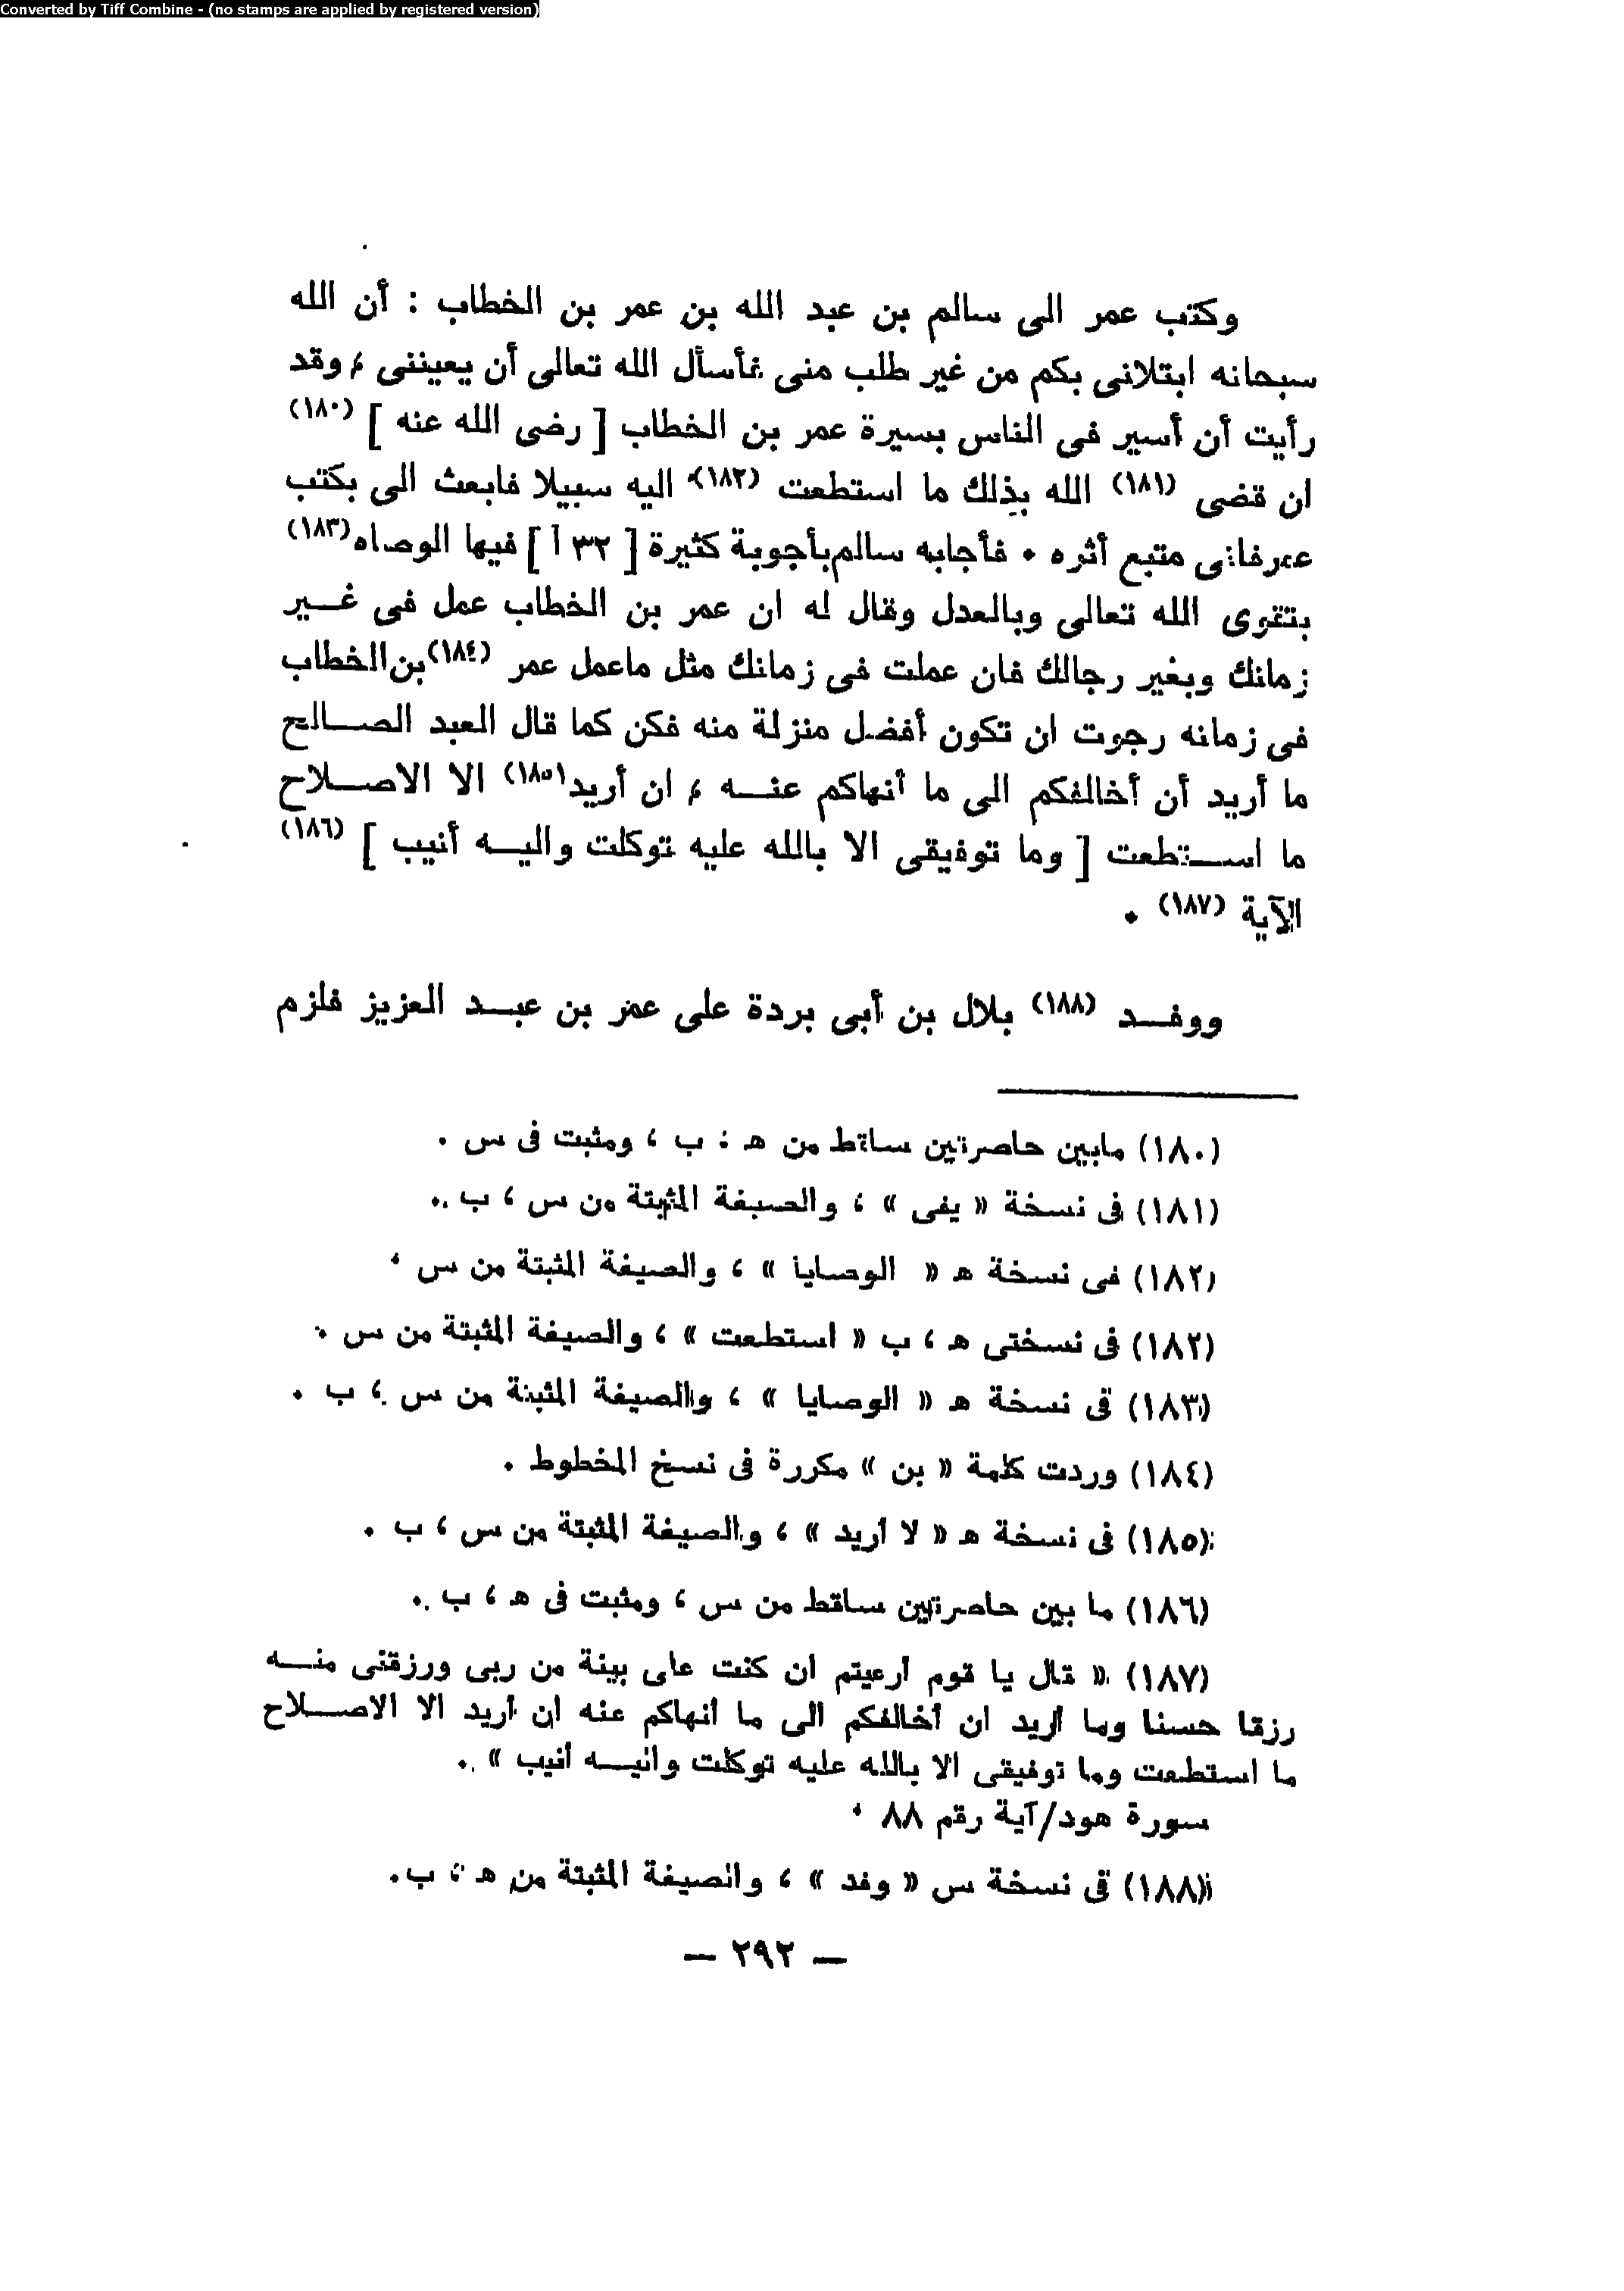 Converted by Tiff Combine - (no stamps are applied by registered version)
وكتب عمر الى سالم بن عبد الله بن عمر بن الخطاب : أن الله
سبحانه ابتلانى بكم من غير طلب منى فأسأل الله تعالى أن يعيننى ، وقد
رأيت أن أسير فى الناس بسيرة عمر بن الخطاب [ رضى الله عنه ] (١٨٠)
ان قضى (١٨١) الله بذلك ما استطعت (١٨٢) اليه سبيلا فابعث الى بكتب
عمر فانى متبع أثره . فأجابه سالم بأجوبة كثيرة [ ٣٢ أ ] فيها الوصاه (١٨٣)
بتقوى الله تعالى وبالعدل وقال له ان عمر بن الخطاب عمل فى غــير
زمانك وبغير رجالك فان عملت فى زمانك مثل ماعمل عمر (١٨٤) بن الخطاب
فى زمانه رجوت ان تكون أفضل منزلة منه فكن كما قال العبد الصــالح
ما أريد أن أخالفكم الى ما أنهاكم عنــه ، ان أريد (١٨٥) الا الاصــلاح
ما اســتطعت [ وما توفيقى الا بالله عليه توكلت واليــه أنيب ] (١٨٦)
الآية (١٨٧) .
ووفــد (١٨٨) بلال بن أبى بردة على عمر بن عبــد العزيز فلزم
(١٨٠) مابين حاصرتين ساقط من هـ ، ب ، ومثبت فى س .
(١٨١) فى نسخة « يفى » ، والصيغة المثبتة من س ، ب .
(١٨٢) فى نسخة هـ « الوصايا » ، والصيغة المثبتة من س .
(١٨٢) فى نسختى هـ ، ب « استطعت » ، والصيغة المثبتة من س .
(١٨٣) فى نسخة هـ « الوصايا » ، والصيغة المثبتة من س ، ب .
(١٨٤) وردت كلمة « بن » مكررة فى نسخ المخطوط .
(١٨٥) فى نسخة هـ « لا أريد » ، والصيغة المثبتة من س ، ب .
(١٨٦) ما بين حاصرتين ساقط من س ، ومثبت فى هـ ، ب .
(١٨٧) « قال يا قوم أرعيتم ان كنت على بينة من ربى ورزقنى منــه
رزقا حسنا وما أريد ان أخالفكم الى ما أنهاكم عنه ان أريد الا الاصــلاح
ما استطعت وما توفيقى الا بالله عليه توكلت واليــه أنيب » .
سورة هود/آية رقم ٨٨ .
(١٨٨) فى نسخة س « وفد » ، والصيغة المثبتة من هـ ، ب .
— ٢٩٢ —